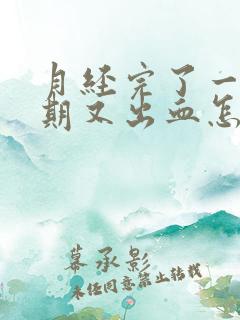 月经完了一
期又出血怎
幕承影
未经同意禁止转载